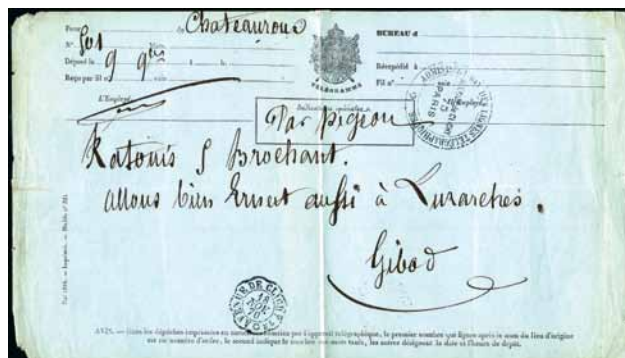 Pour de Chateauroux
N° 501
Déposé le 9 9bre à h.
Reçu par fil n°
L'Employé,
TÉLÉGRAMME
BUREAU d
Réexpédié à
Fil n°
L'Employé
Indications éventuelles
Par pigeon
LIGNES TÉLÉGRAPHIQUES
PARIS
Katouis 5 Brochant.
allons bien Ernest aussi à Luzarches.
Gibod
AVENUE DE CLICHY
18
NOV
70
AVIS. — Dans les dépêches imprimées en par l'appareil télégraphique, le premier nombre qui figure après le nom du lieu d'origine
est un numéro d'ordre, le second indique le nombre des mots taxés, les autres désignent la date et l'heure de dépôt.